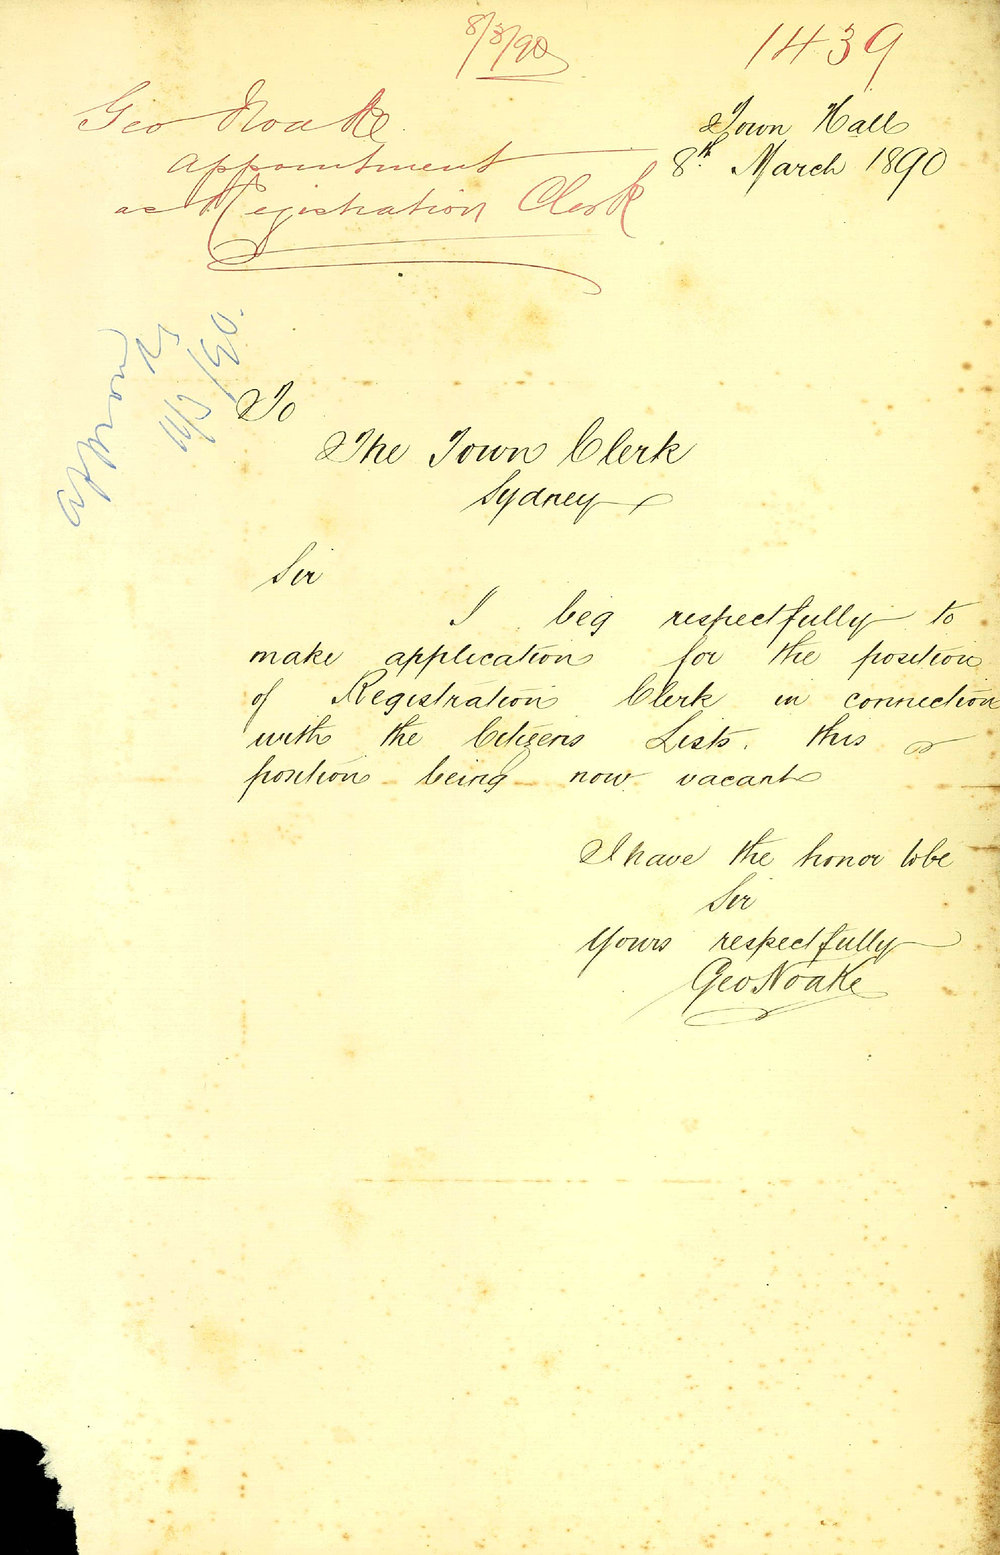 8/3/90
1439
Geo Noake
appointment
as Registration Clerk
Town Hall
8th March 1890
To
The Town Clerk
Sydney
Sir
I beg respectfully to
make application for the position
of Registration Clerk in connection
with the Citizens Lists. this
position being now vacant
I have the honor to be
Sir
Yours respectfully
Geo Noake